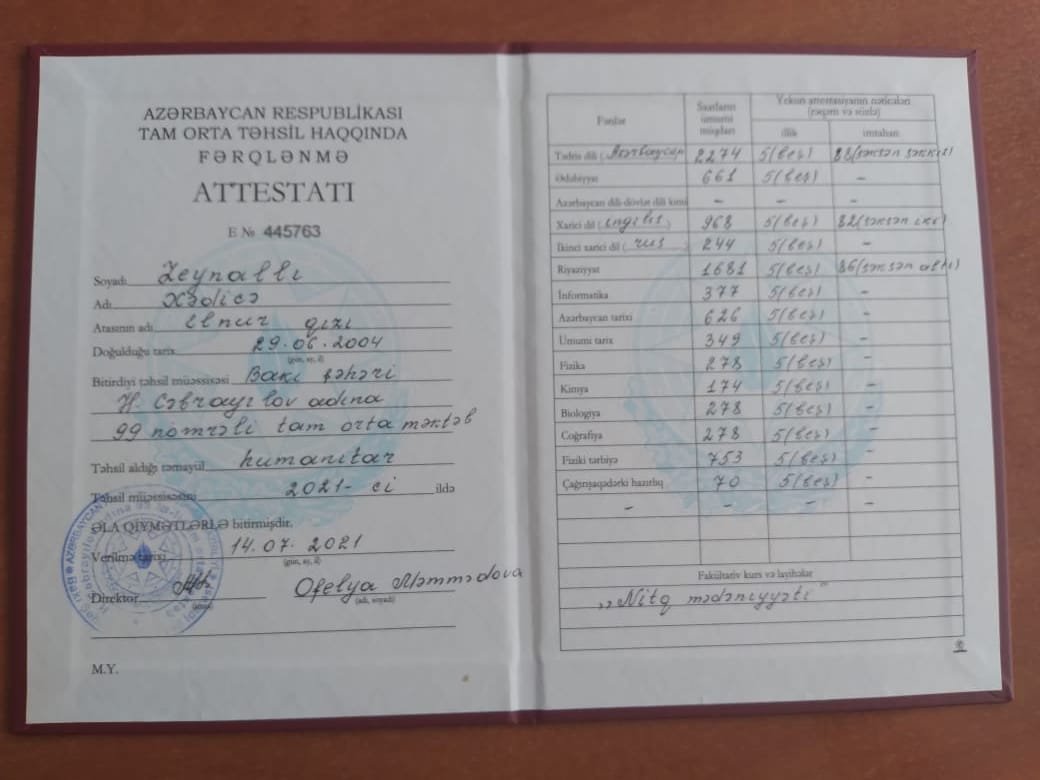 AZƏRBAYCAN RESPUBLİKASI
TAM ORTA TƏHSİL HAQQINDA
FƏRQLƏNMƏ
ATTESTATI
E № 445763
Soyadı Zeynallı
Adı Xədicə
Atasının adı Elnur qızı
Doğulduğu tarix 29.06.2004
(gün, ay, il)
Bitirdiyi təhsil müəssisəsi Bakı şəhəri
H. Cəbrayılov adına
99 nömrəli tam orta məktəb
Təhsil aldığı təmayül humanitar
Təhsil müəssisəsini 2021-ci ildə
ƏLA QİYMƏTLƏRLƏ bitirmişdir.
Verilmə tarixi 14.07.2021
(gün, ay, il)
Direktor Ofelya Məmmədova
(imza) (adı, soyadı)
M.Y.
Fənlər Saatların ümumi miqdarı Yekun attestasiyanın nəticələri (rəqəm və sözlə)
illik imtahan
Tədris dili (Azərbaycan) 2274 5(beş) 88(səksən səkkiz)
Ədəbiyyat 661 5(beş) –
Azərbaycan dili-dövlət dili kimi – – –
Xarici dil (ingilis) 968 5(beş) 82(səksən iki)
İkinci xarici dil (rus) 244 5(beş) –
Riyaziyyat 1681 5(beş) 86(səksən altı)
İnformatika 377 5(beş) –
Azərbaycan tarixi 626 5(beş) –
Ümumi tarix 349 5(beş) –
Fizika 278 5(beş) –
Kimya 174 5(beş) –
Biologiya 278 5(beş) –
Coğrafiya 278 5(beş) –
Fiziki tərbiyə 753 5(beş) –
Çağırışaqədərki hazırlıq 70 5(beş) –
– – – –
Fakültativ kurs və layihələr
„Nitq mədəniyyəti"